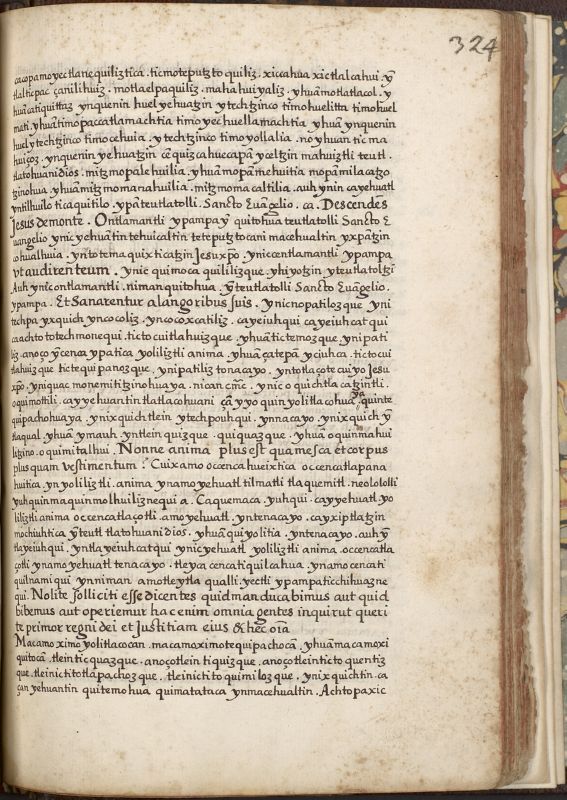 324
cacopa mo yectlanequiliztica . ticmoteputztoquiliz . xiccahua xictlalcahui . ỹ
tlalticpac çanilihuiz . motlaelpaquiliz . mahahuiyaliz . yhuã motlatlacol . y
huã catiquittaz ynquenin huel yehuatzin ytechtzinco timohuelitta timohuel
mati . yhuã timopaccatlamachtia timoyec huellamachtia yhuã ynquenin
huel ytechtzinco timocehuia . ytechtzinco timoyollalia . no yhuan ticma
huiçoz . ynquenin yehuatzin cẽquizcahueca pã yceltzin mahuiztli teutl .
tlatohuani dios . mitzmopalehuilia . yhuã mopã mehuitia mopã milacatzo
tzinohua . yhuã mitzmomanahuilia . mitzmomacaltilia . auh ynin cayehuatl
yntilhuilo ticaquitilo . ypã teutlatolli . Sancto Euãgelio . ca . Descendes
Jesus demonte . Ontlamantli ypampa ỹ quitohua teutlatolli Sancto E
uangelio ynic yehuãtin tehuicaltin teteputztocani macehualtin yxpãtzin
cohualhuia . ynto temaquixticatzin Jesu xp̃o ynic centlamantli ypampa
vt audirent eum . ynic quimocaquililizque . yhiyotzin yteutlatoltzi
Auh ynic ontlamantli . niman quitohua . ỹ teutlatolli Sancto Euãgelio .
ypampa . Et Sanarentur alangoribus suis . ynic nopatilozque yni
techpa yxquich yncocoliz . yncocoxcatiliz . ca yeiuhqui ca yeiuhcatqui
ca achto totechmonequi . ticto cuitlahuizque . yhuã tictemozque ynipati
liz . anoço ỹcenca ypatica yoliliztli anima . yhuã çatepã yciuhca . tictocui
tlahuizque tictequipanozque . ynipatiliz tonacayo . ynto tlaçotecuiyo Jesu
xp̃o . yniquac monemitizinohuaya . nican cm̃c . ynic oquichtlacatzintli .
oquimottili . ca yyehuantin tlatlacohuani cã yyo quin yolitlacohuaya . quinte
quipachohuaya . ynixquich tlein ytechpouhqui . ynnacayo . ynixquich ỹ
tlaqual . yhuã ymauh yntlein quizque . quiquazque . yhuã oquinmahui
litzino . oquimitalhui . Nonne anima plus est quam esca et corpus
plus quam vestimentum ? Cuix amo occenca hueixtica occentlapana
huitica . yn yoliliztli . anima ynamo yehuatl tilmatli tlaquemitl . neolololli
yuhquinmaquinmolhuiliznequi a . Ca quemaca . yuhqui . ca yyehuatl . yo
liliztli anima occencatlaçotli . amo yehuatl . yntenacayo . ca yxiptlatzin
mochiuhtica ỹ teutl tlatohuani dios . yhuã quiyolitia . yntenacayo . auh ỹ
tlayeiuhqui . yntlayeiuhcatqui ynic yehuatl yoliliztli anima . occencatla
çotli ynamo yehuatl tenacayo . tleyca cenca tiquilcahua . ynamo cenca ti
quilnamiqui ynniman amotleytla qualli . yectli ypampa ticchihuazne
qui . Nolite solliciti esse dicentes quid manducabimus aut quid
bibemus aut operiemur hac enim omnia gentes inquirut queri
te primor regni dei et Justitiam eius & hec oĩa
Macamo ximoyolitlacocan . macamo ximotequipachocã . yhuã macamo xi
quitocã . tleinticquazque . anoço tlein tiquizque . anoço tleintictoquentiz
que . tleinictitotlapachozque . tleinictitoquimilozque . ynixquichtin . ca
çan yehuantin quitemohua quimatataca ynmacehualtin . Achtopa xic